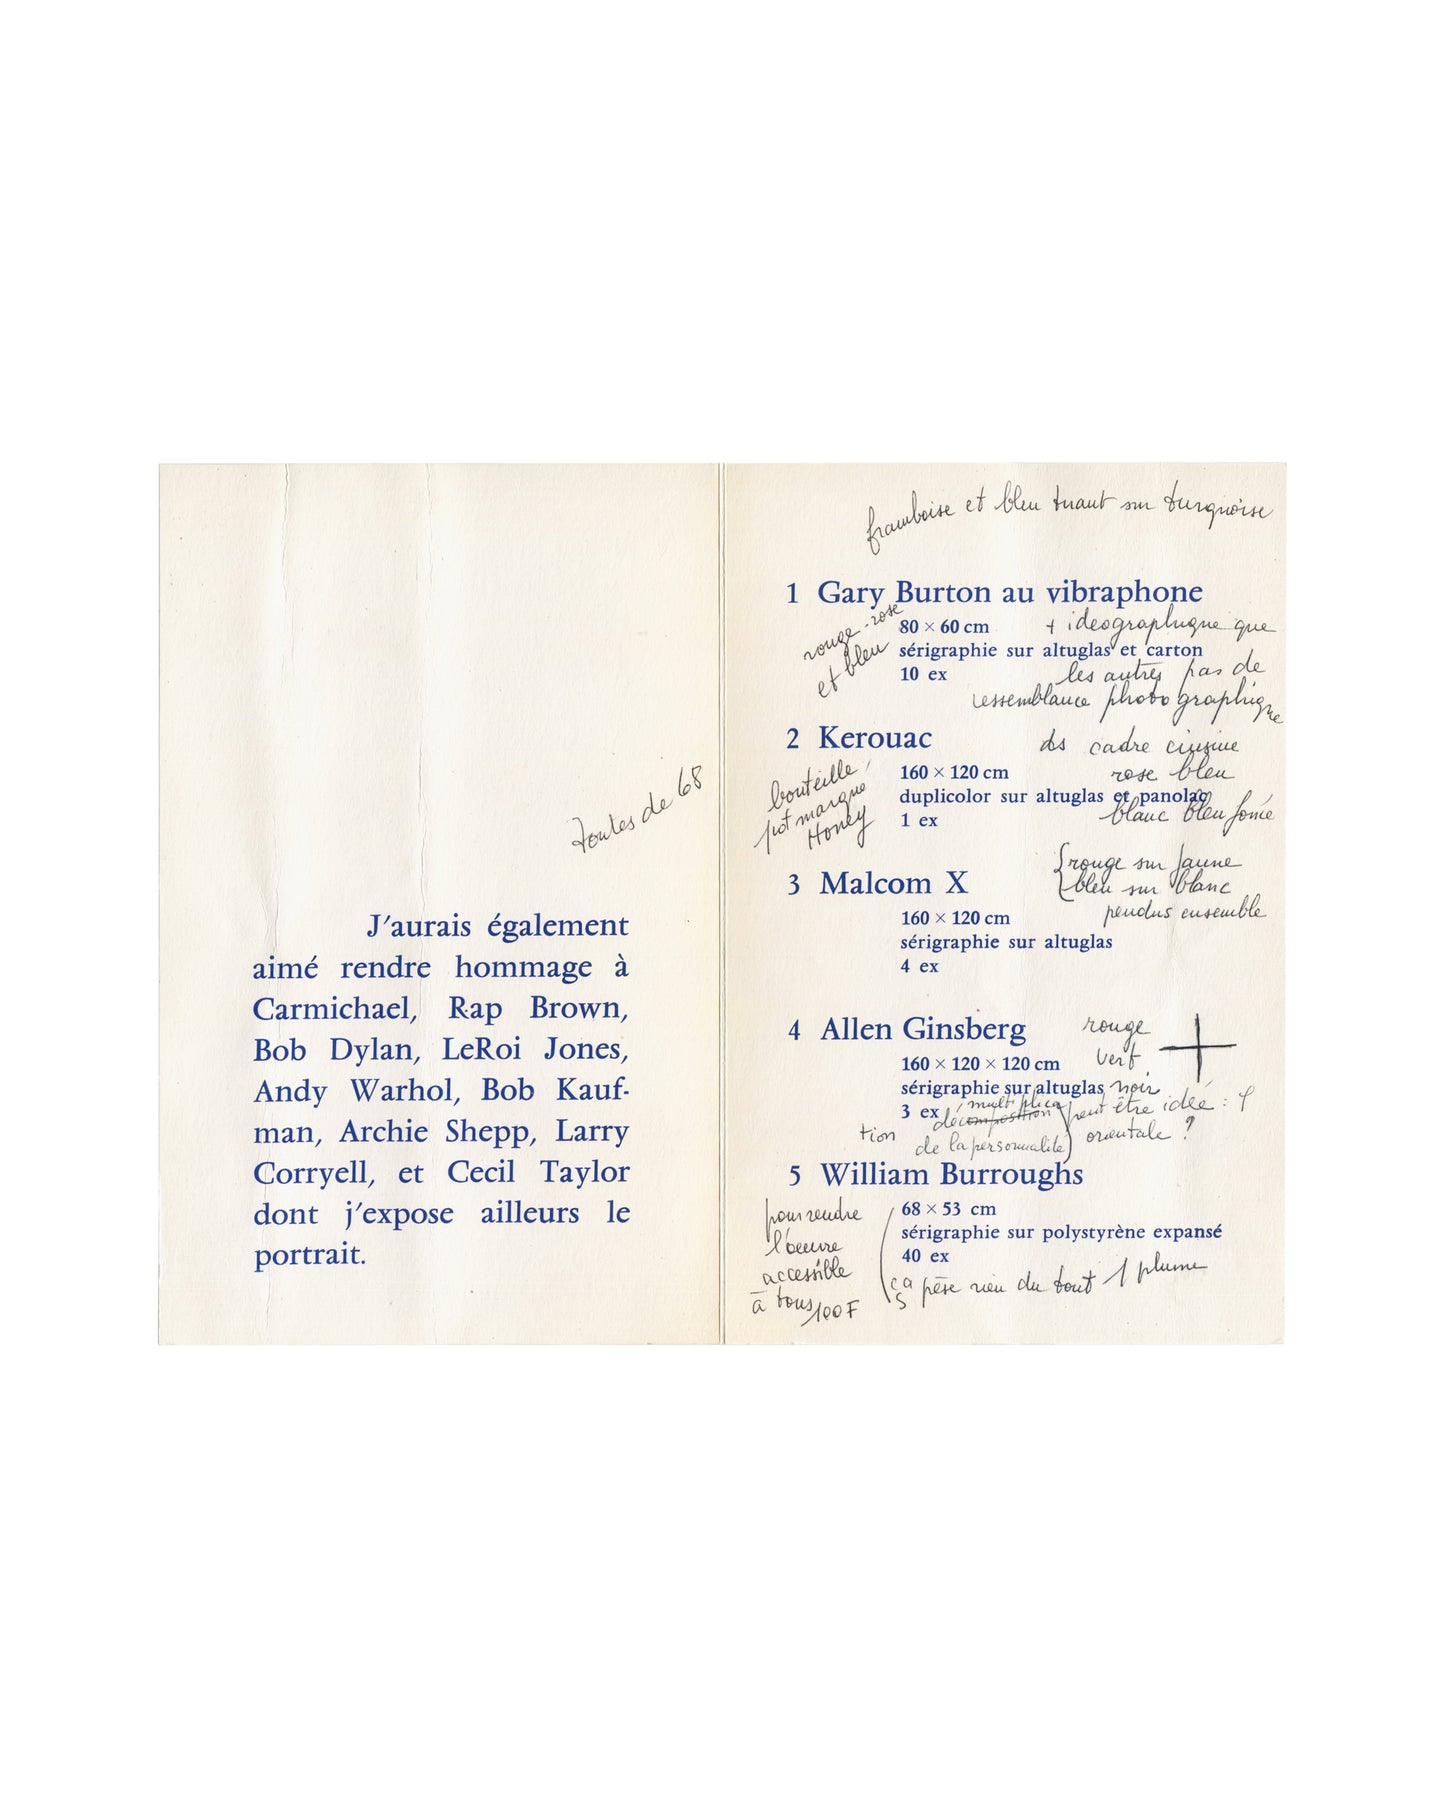 toutes de 68
J'aurais également
aimé rendre hommage à
Carmichael, Rap Brown,
Bob Dylan, LeRoi Jones,
Andy Warhol, Bob Kauf-
man, Archie Shepp, Larry
Corryell, et Cecil Taylor
dont j'expose ailleurs le
portrait.
framboise et bleu tuant sur turquoise
1 Gary Burton au vibraphone
rouge-rose
et bleu
80 × 60 cm
sérigraphie sur altuglas et carton
10 ex
+ ideographique que
les autres pas de
ressemblance photographique
2 Kerouac
160 × 120 cm
duplicolor sur altuglas et panolac
1 ex
bouteille,
pot marque
Honey
ds cadre
rose bleu
blanc bleu
3 Malcom X
160 × 120 cm
sérigraphie sur altuglas
4 ex
rouge sur jaune
bleu sur blanc
pendus ensemble
4 Allen Ginsberg
160 × 120 × 120 cm
sérigraphie sur altuglas
3 ex
rouge
vert
noir
multiplica
décomposition
tion
de la personnalité
peut être idée :
orientale ?
5 William Burroughs
68 × 53 cm
sérigraphie sur polystyrène expansé
40 ex
pour rendre
l'oeuvre
accessible
à tous 100F
ça pèse rien du tout 1 plume